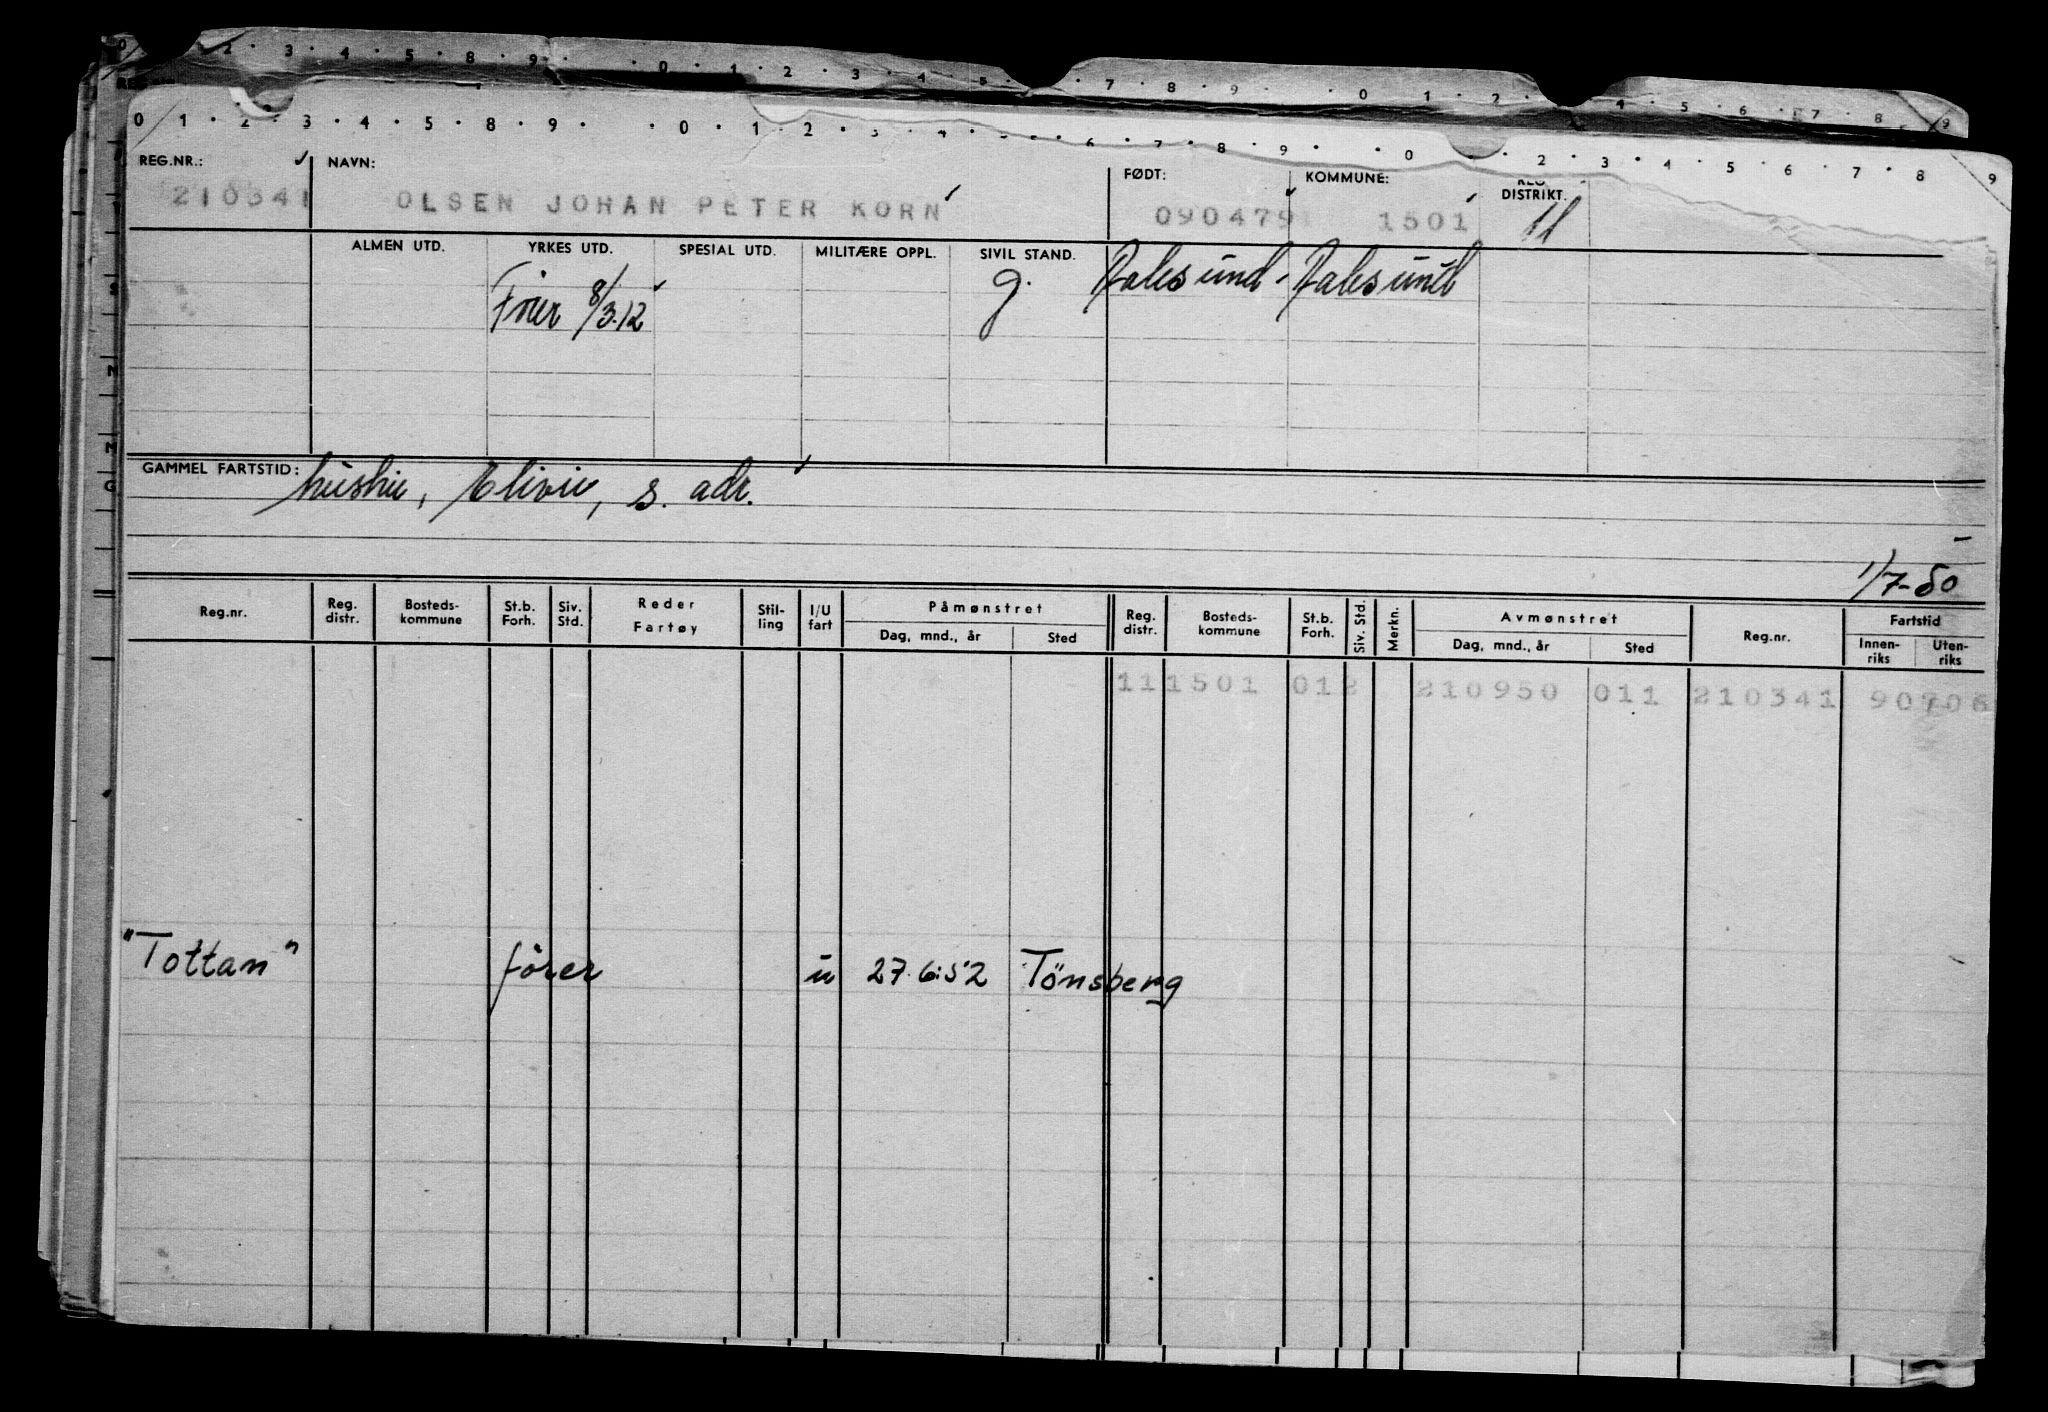 REG.NR.: NAVN: FØDT: KOMMUNE: DISTRIKT.
210341 OLSEN JOHAN PETER KORN 090479 1501 11
ALMEN UTD. YRKES UTD. SPESIAL UTD. MILITÆRE OPPL. SIVIL STAND.
8/3.12 g. Aalesund. Aalesund
GAMMEL FARTSTID: hustru, s. adr.
1/7-50
Reg.nr. Reg. distr. Bosteds-kommune St.b. Forh. Siv. Std. Reder Fartøy Stil-ling I/U fart Påmønstret Dag, mnd., år Sted Reg. distr. Bosteds-kommune St.b. Forh. Siv. Std. Merkn. Avmønstret Dag, mnd., år Sted Reg.nr. Fartstid Innen-riks Uten-riks
11 1501 012 210950 011 210341 90706
"Tottan" förer u 27.6.52 Tönsberg